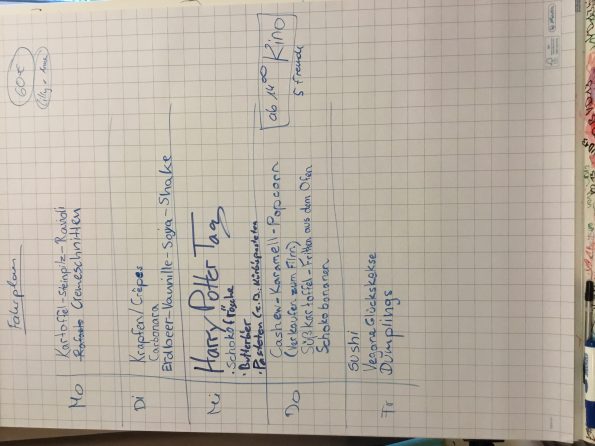 Fahrplan
60€
Mo
Kartoffel-Steinpilz-Ravioli
Cremeschnitten
Di
Krapfen/Crêpes
Carbonara
Erdbeer-Vanille-Soya-Shake
Mi
Harry Potter Tag
· Schokofrösche
· Butterbier
· Pasteten (z.B. Kürbispasteten)
Do
Cashew-Karamell-Popcorn
(Verkaufen zum Film)
Süßkartoffel-Fritten aus dem Ofen
Schokobananen
ab 14⁰⁰ Kino
5 Freunde
Fr
Sushi
Vegane Glückskekse
Dumplings